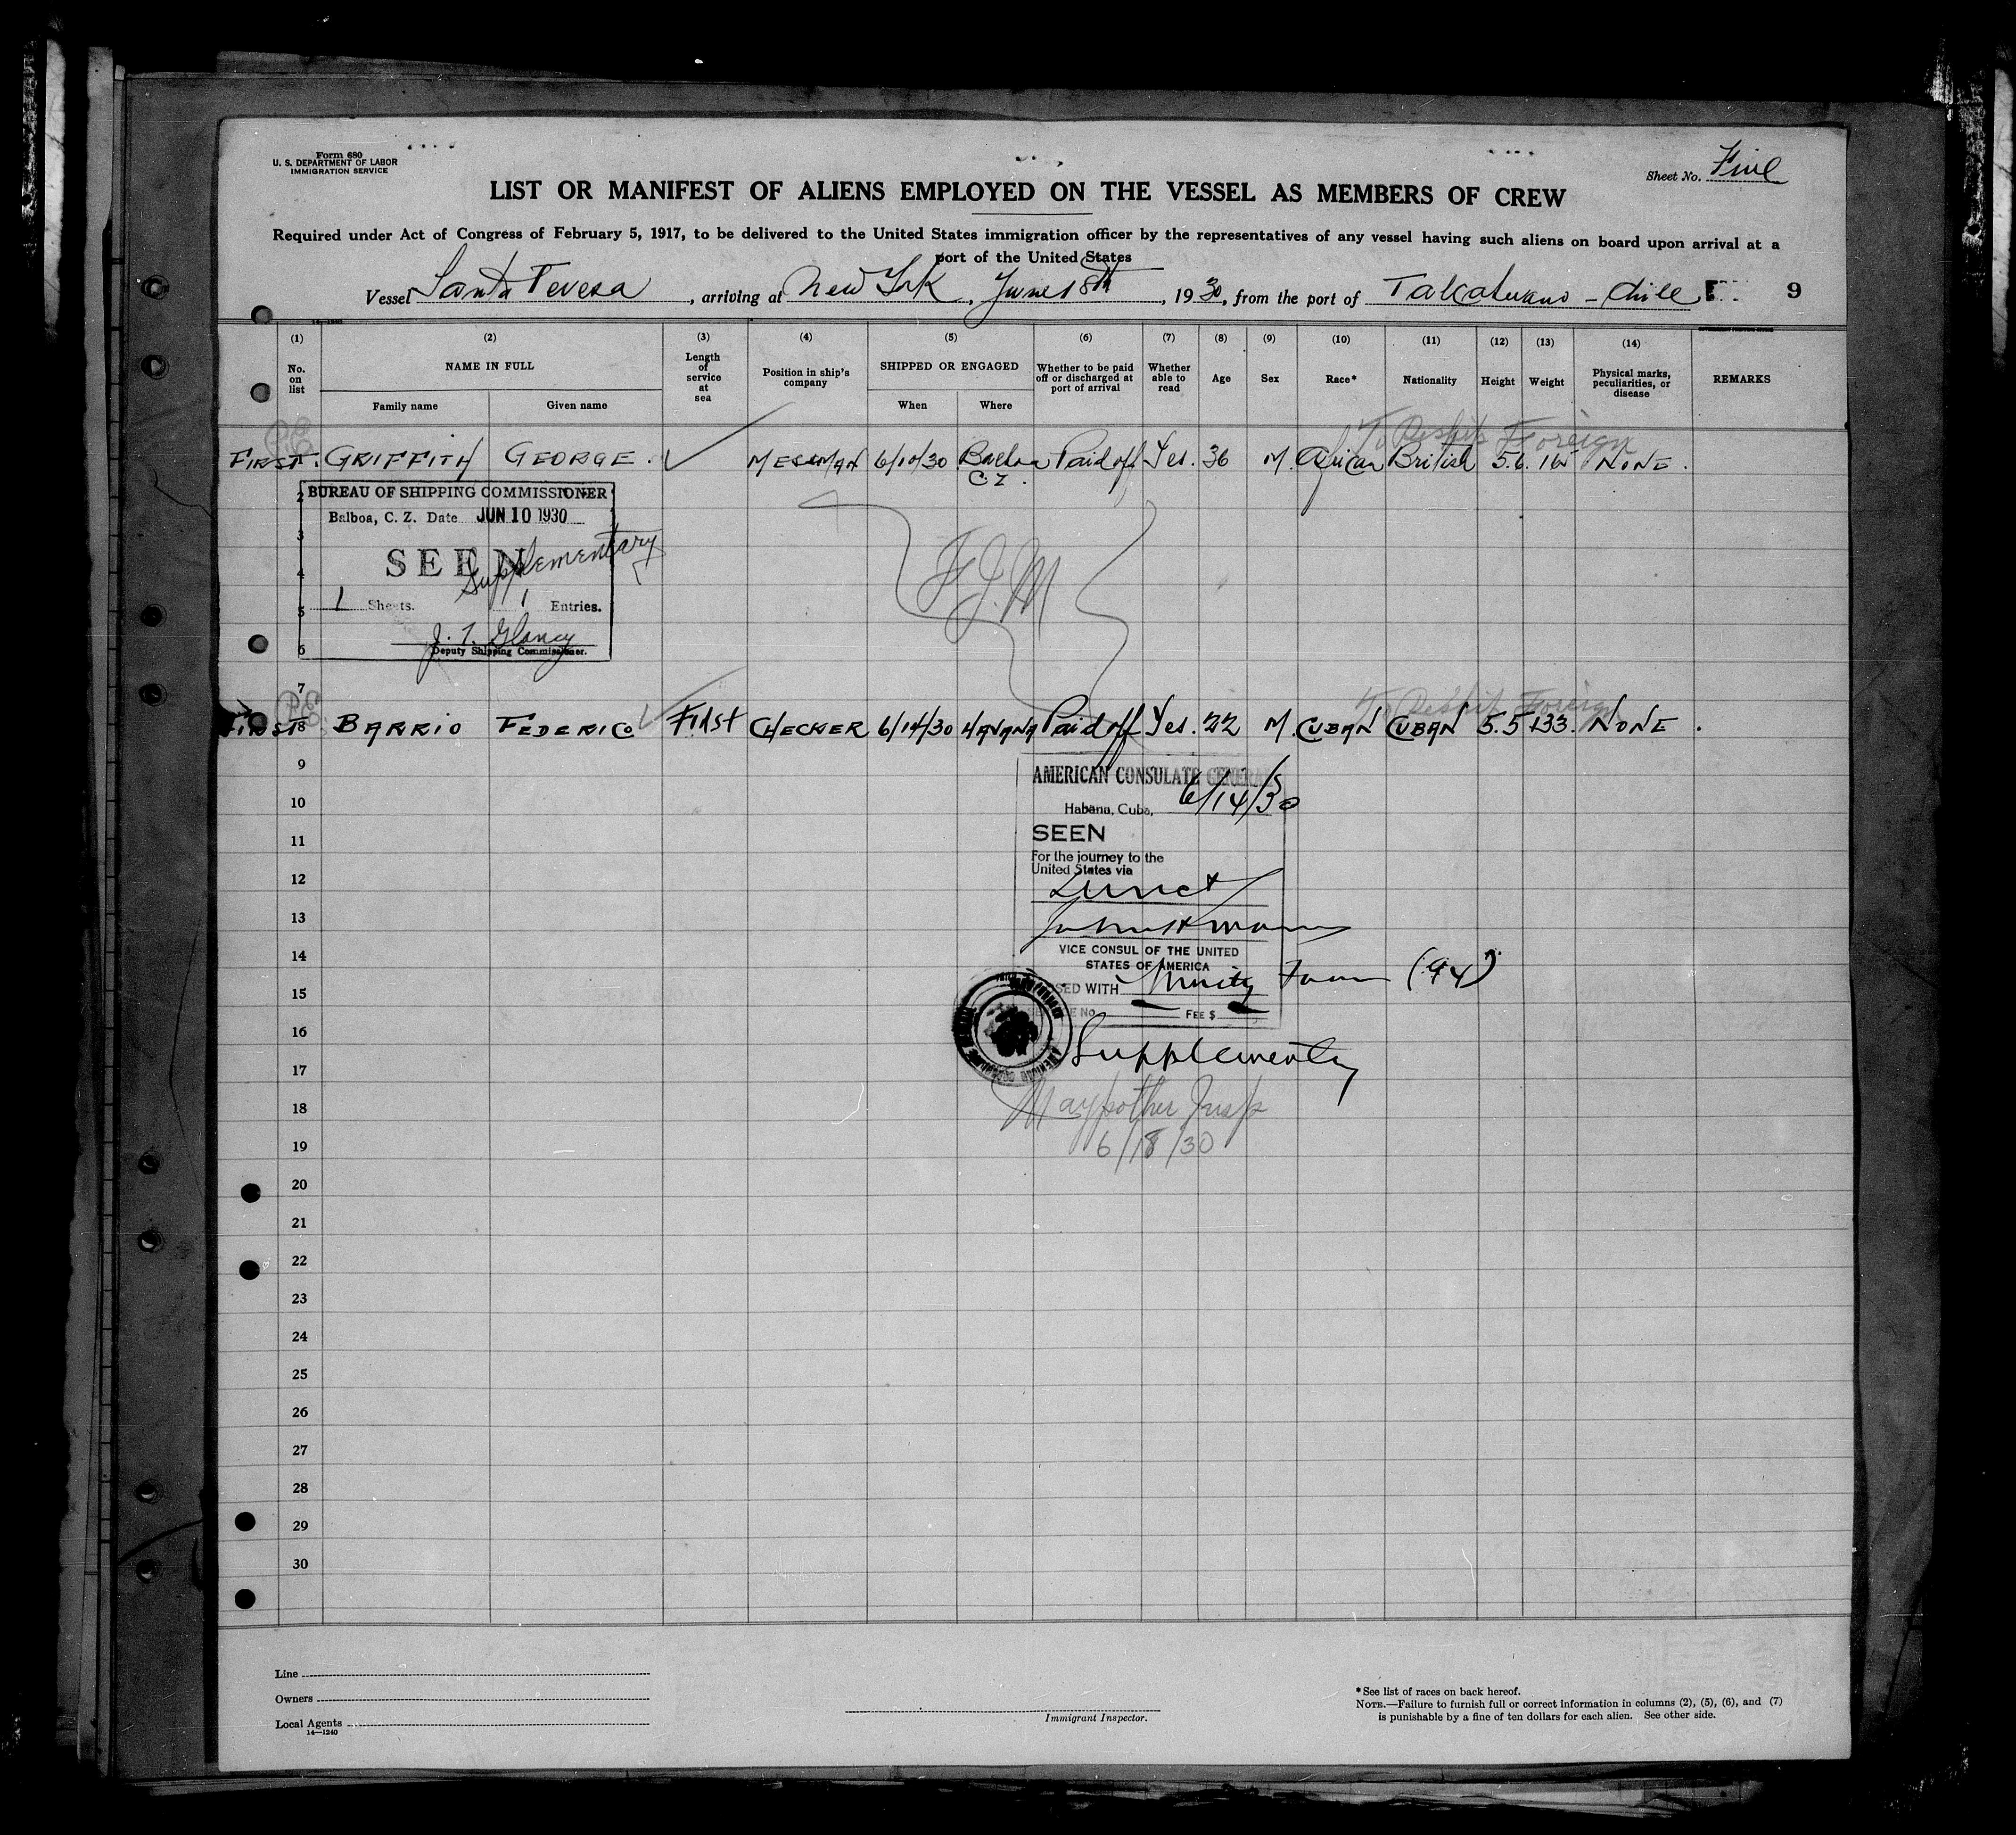 Form 680
U. S. DEPARTMENT OF LABOR
IMMIGRATION SERVICE
Sheet No. Five
LIST OR MANIFEST OF ALIENS EMPLOYED ON THE VESSEL AS MEMBERS OF CREW
Required under Act of Congress of February 5, 1917, to be delivered to the United States immigration officer by the representatives of any vessel having such aliens on board upon arrival at a
port of the United States
Vessel Santa Teresa, arriving at New York, June 18th, 1930, from the port of Talcahuano - Chile 9
(1) (2) (3) (4) (5) (6) (7) (8) (9) (10) (11) (12) (13) (14)
No. on list NAME IN FULL Length of service at sea Position in ship's company SHIPPED OR ENGAGED Whether to be paid off or discharged at port of arrival Whether able to read Age Sex Race* Nationality Height Weight Physical marks, peculiarities, or disease REMARKS
Family name Given name When Where
To Reship Foreign
FIRST. GRIFFITH GEORGE. MESSMAN 6/10/30 Balboa C.Z. Paid off Yes. 36 M. African British 5.6. NONE.
2 BUREAU OF SHIPPING COMMISSIONER
Balboa, C. Z. Date JUN 10 1930
3
SEEN Supplementary
4
1 Sheets. 1 Entries.
5
J. T. Glancy
6 Deputy Shipping Commissioner.
F.J.M
7
To Reship Foreign
FIRST 8 BARRIO FEDERICO FIRST CHECKER 6/14/30 HAVANA Paid off Yes. 22 M. CUBAN CUBAN 5.5 133. NONE.
9
AMERICAN CONSULATE GENERAL
10
Habana, Cuba, 6/14/30
11
SEEN
For the journey to the
United States via
12
direct
13
14
VICE CONSUL OF THE UNITED
STATES OF AMERICA
15
SED WITH (94)
16
E No. FEE $
Supplementy
17
18
Maypother Insp
19
6/18/30
20
21
22
23
24
25
26
27
28
29
30
Line
Owners
Local Agents
14—1240
Immigrant Inspector.
*See list of races on back hereof.
NOTE.—Failure to furnish full or correct information in columns (2), (5), (6), and (7)
is punishable by a fine of ten dollars for each alien. See other side.